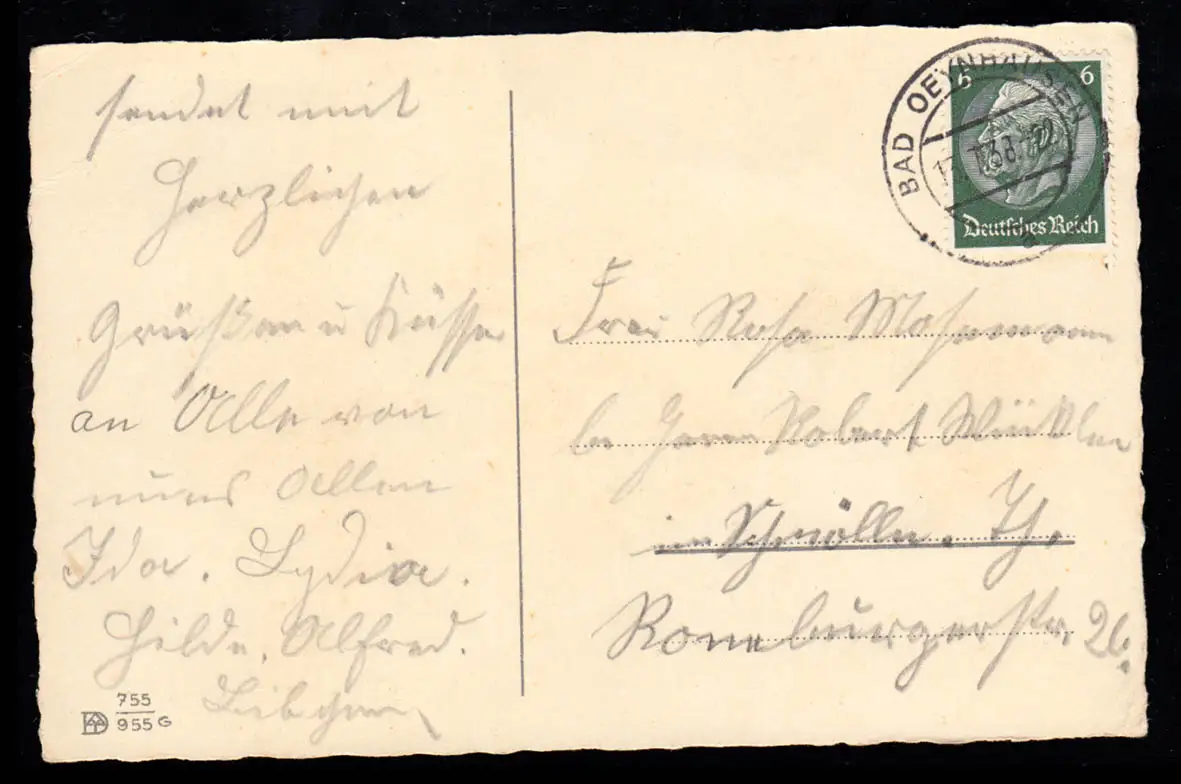 sendet mit
Herzlichen
Grüßen u Küsse
an Alle von
uns Allen
Ida. Lydia.
Hilde. Alfred.
755
955 G
BAD OEYNHAUSEN
6 6
Deutsches Reich
a
Frau Rosa Mosemann
bei Herrn Robert Winkler
in Schmölln. Th.
Ronneburgerstr. 26.